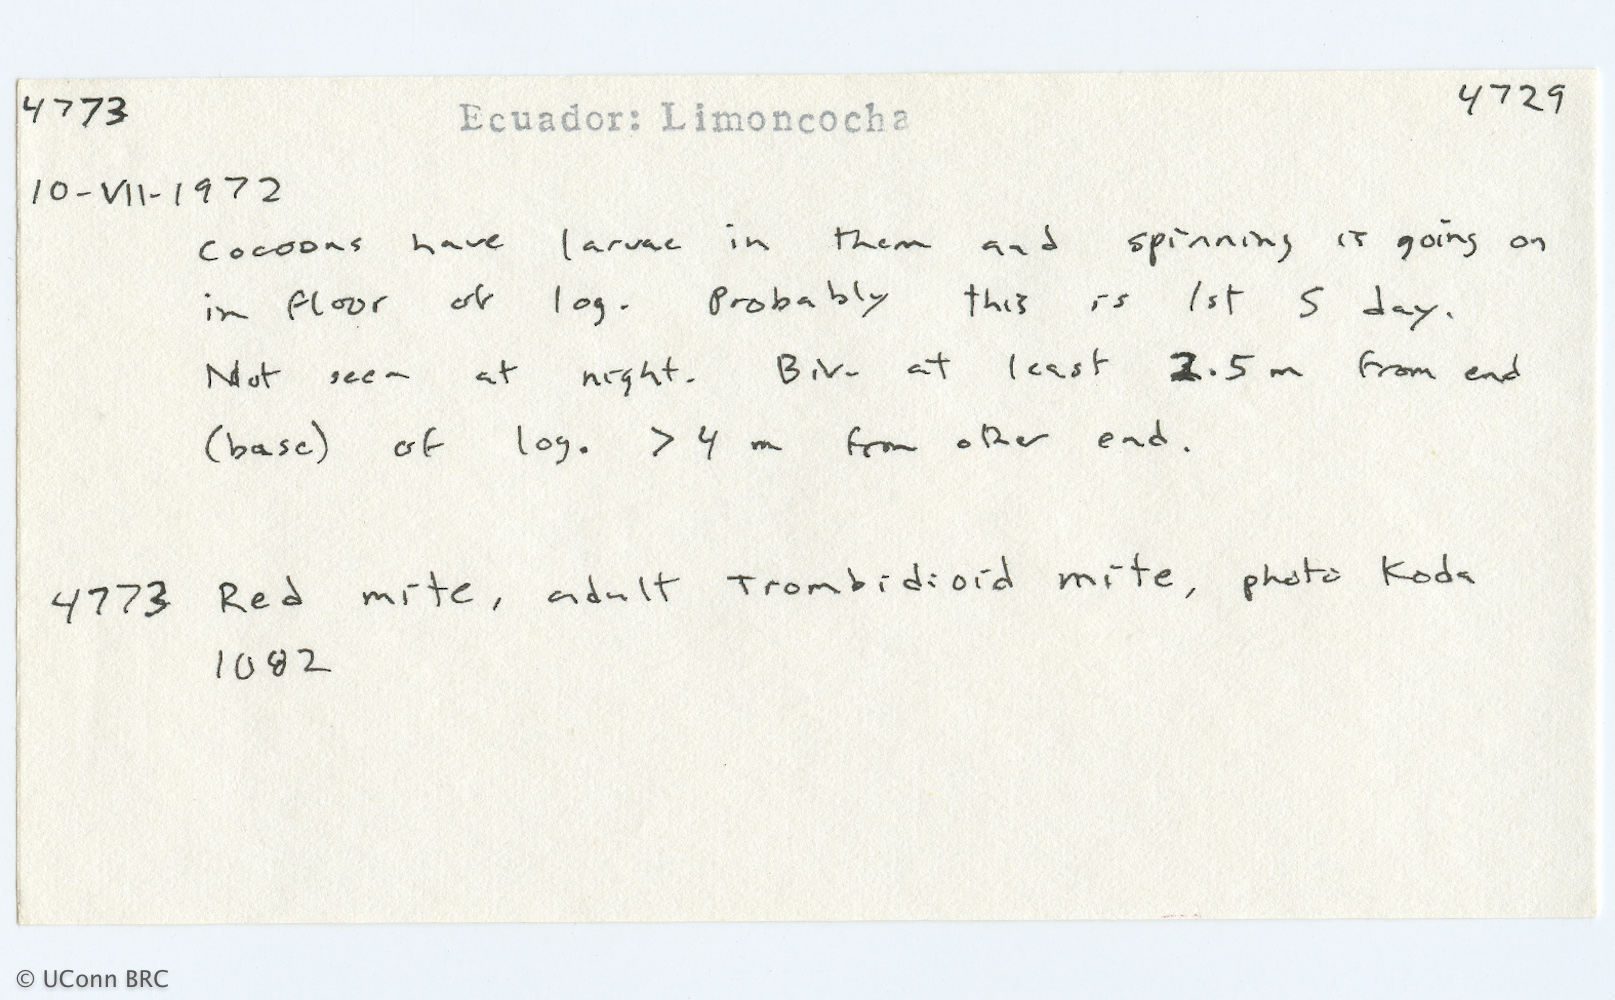 4773 Ecuador: Limoncocha 4729
10-VII-1972
Cocoons have larvae in them and spinning is going on
in floor of log. Probably this is 1st S day.
Not seen at night. Biv. at least 2.5 m from end
(base) of log. > 4 m from other end.
4773 Red mite, adult Trombidioid mite, photo Koda
1082
© UConn BRC